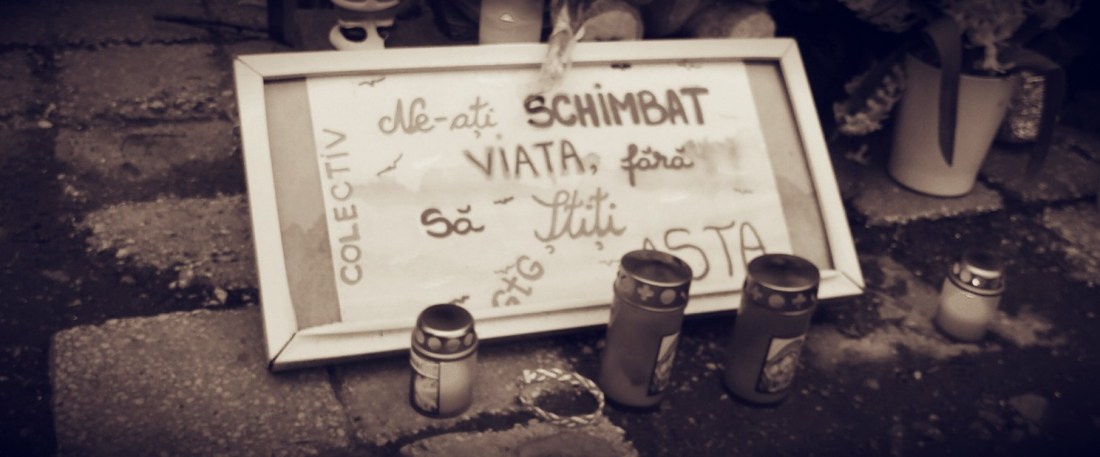 COLECTIV
Ne-ați SCHIMBAT
VIATA, fără
Să Știți
ASTA